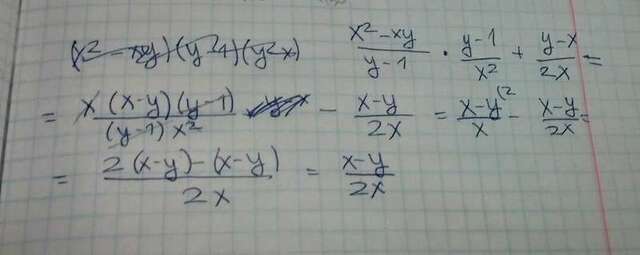 (x² - xy)(y - 1)(y - x) (x² - xy)/(y - 1) · (y - 1)/x² + (y - x)/(2x) =
= x(x - y)(y - 1)/((y - 1)x²) - (x - y)/(2x) = (x - y)/x ⁽² - (x - y)/(2x) =
= (2(x - y) - (x - y))/(2x) = (x - y)/(2x)